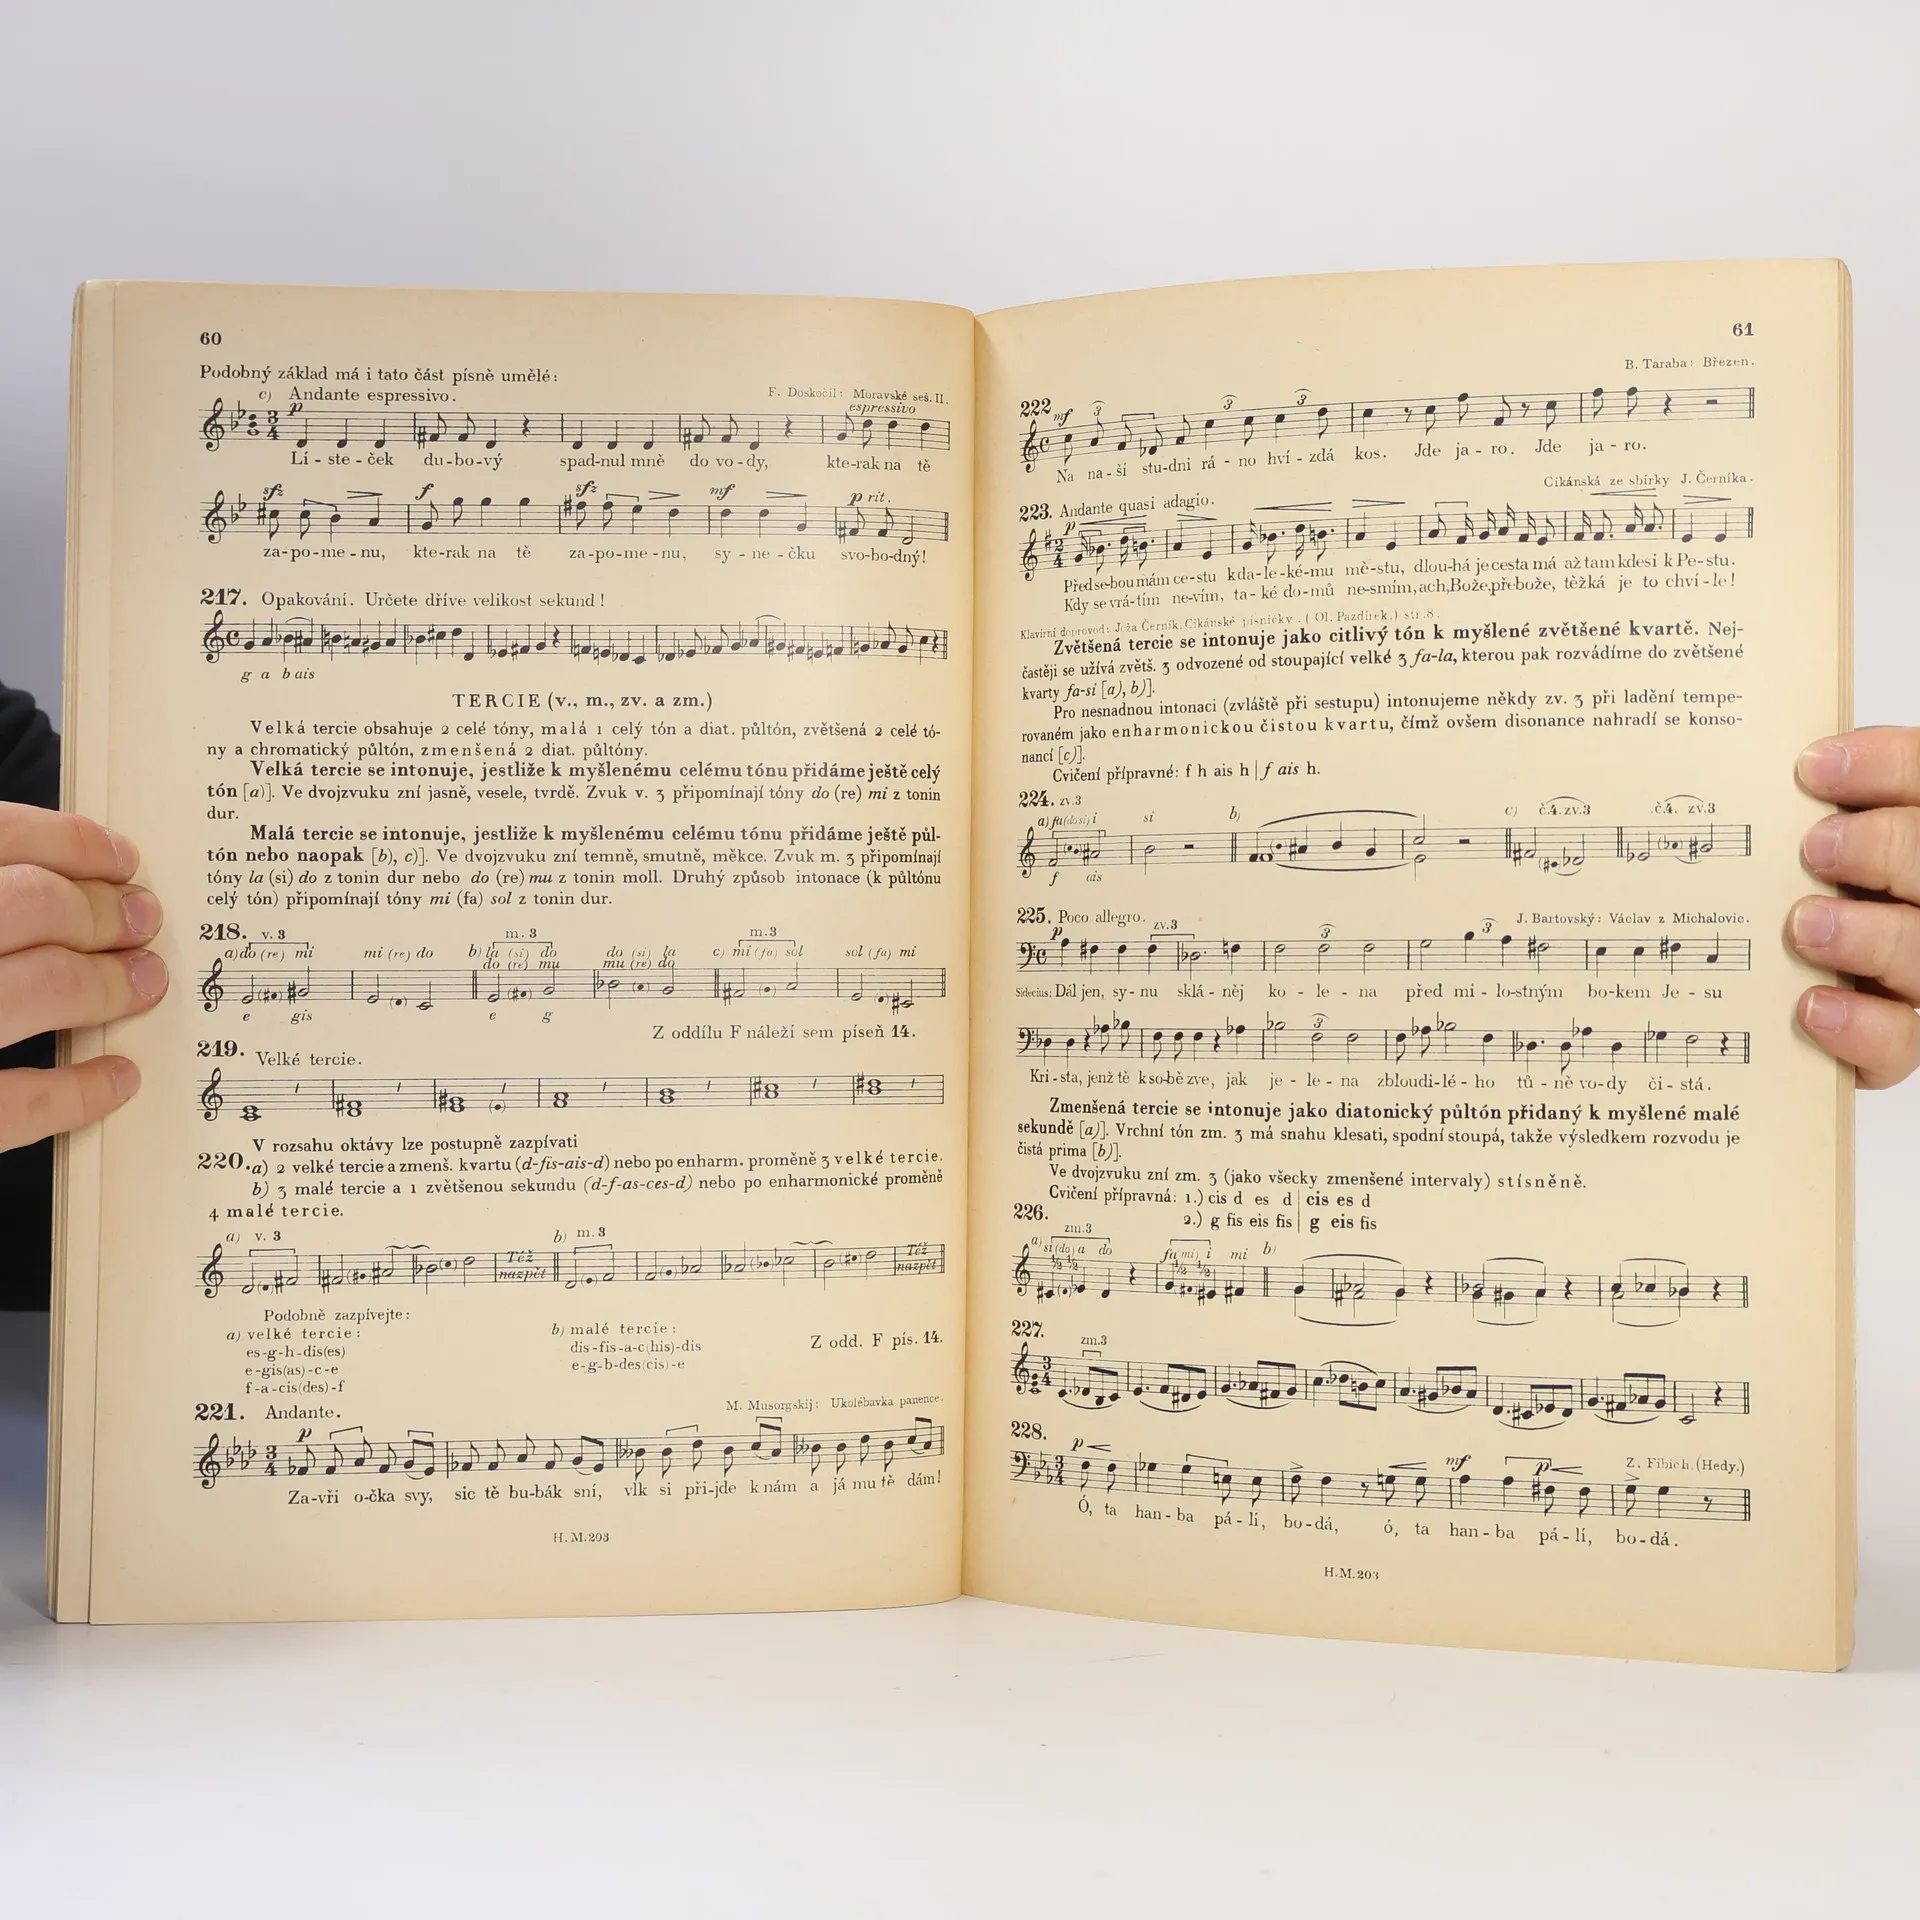 60
Podobný základ má i tato část písně umělé:
c) Andante espressivo.
F. Doskočil: Moravské seš. II.
p
espressivo
Lí - ste - ček du - bo - vý spad-nul mně do vo - dy, kte-rak na tě
sfz f sfz mf p rit.
za-po-me-nu, kte-rak na tě za-po-me-nu, sy - ne - čku svo-bo-dný!
217. Opakování. Určete dříve velikost sekund!
g a b ais
TERCIE (v., m., zv. a zm.)
Velká tercie obsahuje 2 celé tóny, malá 1 celý tón a diat. půltón, zvětšená 2 celé tó-
ny a chromatický půltón, zmenšená 2 diat. půltóny.
Velká tercie se intonuje, jestliže k myšlenému celému tónu přidáme ještě celý
tón [a)]. Ve dvojzvuku zní jasně, vesele, tvrdě. Zvuk v. 3 připomínají tóny do (re) mi z tonin
dur.
Malá tercie se intonuje, jestliže k myšlenému celému tónu přidáme ještě půl-
tón nebo naopak [b), c)]. Ve dvojzvuku zní temně, smutně, měkce. Zvuk m. 3 připomínají
tóny la (si) do z tonin dur nebo do (re) mu z tonin moll. Druhý způsob intonace (k půltónu
celý tón) připomínají tóny mi (fa) sol z tonin dur.
218. v. 3 m. 3 m. 3
a) do (re) mi mi (re) do b) la (si) do do (si) la c) mi (fa) sol sol (fa) mi
do (re) mu mu (re) do
e gis e g
Z oddílu F náleží sem píseň 14.
219. Velké tercie.
V rozsahu oktávy lze postupně zazpívati
220. a) 2 velké tercie a zmenš. kvartu (d-fis-ais-d) nebo po enharm. proměně 3 velké tercie.
b) 3 malé tercie a 1 zvětšenou sekundu (d-f-as-ces-d) nebo po enharmonické proměně
4 malé tercie.
a) v. 3 b) m. 3
Též Též
nazpět nazpět
Podobně zazpívejte:
a) velké tercie: b) malé tercie:
es-g-h-dis(es) dis-fis-a-c(his)-dis
e-gis(as)-c-e e-g-b-des(cis)-e
f-a-cis(des)-f
Z odd. F pís. 14.
221. Andante.
M. Musorgskij: Ukolébavka panence.
p
Za-vři o-čka svy, sic tě bu-bák sní, vlk si při-jde k nám a já mu tě dám!
H. M. 203
61
B. Taraba: Březen.
222 mf 3 3 3
Na na-ší stu-dni rá-no hví-zdá kos. Jde ja-ro. Jde ja-ro.
Cikánská ze sbírky J. Černíka.
223. Andante quasi adagio.
p
Před se-bou mám ce-stu k da-le-ké-mu mě-stu, dlou-há je cesta má až tam kdesi k Pe-stu.
Kdy se vrá-tím ne-vím, ta-ké do-mů ne-smím, ach, Bože, přebože, těžká je to chví-le!
Klavírní doprovod: Joža Černík, Cikánské písničky. (Ol. Pazdírek.) str. 8.
Zvětšená tercie se intonuje jako citlivý tón k myšlené zvětšené kvartě. Nej-
častěji se užívá zvětš. 3 odvozené od stoupající velké 3 fa-la, kterou pak rozvádíme do zvětšené
kvarty fa-si [a), b)].
Pro nesnadnou intonaci (zvláště při sestupu) intonujeme někdy zv. 3 při ladění tempe-
rovaném jako enharmonickou čistou kvartu, čímž ovšem disonance nahradí se konso-
nancí [c)].
Cvičení přípravné: f h ais h | f ais h.
224. zv.3
a) fa (la si) i si b) c) č.4. zv.3 č.4. zv.3
f ais
225. Poco allegro.
J. Bartovský: Václav z Michalovic.
p zv.3 3 3
Sidecius: Dál jen, sy-nu sklá-něj ko-le-na před mi-lo-stným bo-kem Je-su
3
Kri-sta, jenž tě k sobě zve, jak je-le-na zbloudi-lé-ho tů-ně vo-dy či-stá.
Zmenšená tercie se intonuje jako diatonický půltón přidaný k myšlené malé
sekundě [a)]. Vrchní tón zm. 3 má snahu klesati, spodní stoupá, takže výsledkem rozvodu je
čistá prima [b)].
Ve dvojzvuku zní zm. 3 (jako všecky zmenšené intervaly) stísněně.
Cvičení přípravná: 1.) cis d es d | cis es d
2.) g fis eis fis | g eis fis
226.
zm.3
a) si (do) a do fa (mi) i mi b)
½ ½ ½ ½
227.
zm.3
228.
p mf p
Z. Fibich. (Hedy.)
Ó, ta han-ba pá-lí, bo-dá, ó, ta han-ba pá-lí, bo-dá.
H. M. 203